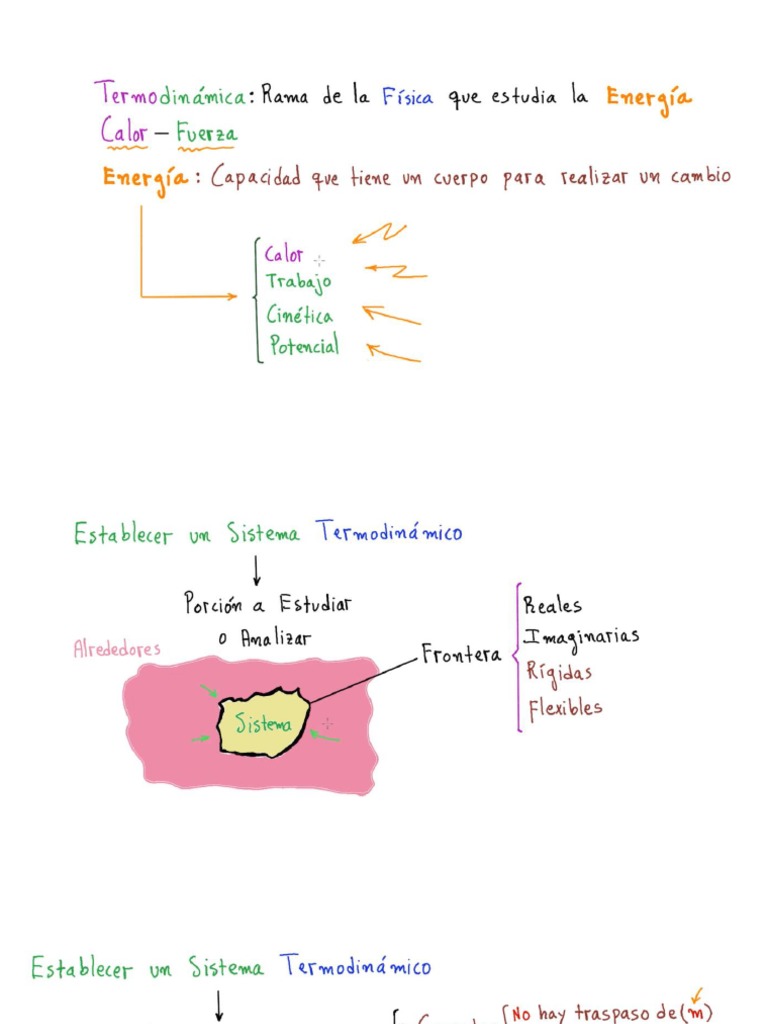 Termodinámica: Rama de la Física que estudia la Energía
Calor – Fuerza
Energía: Capacidad que tiene un cuerpo para realizar un cambio
Calor
Trabajo
Cinética
Potencial
Establecer un Sistema Termodinámico
Porción a Estudiar
o Analizar
Alrededores
Sistema
Frontera
Reales
Imaginarias
Rígidas
Flexibles
Establecer un Sistema Termodinámico
No hay traspaso de (m)